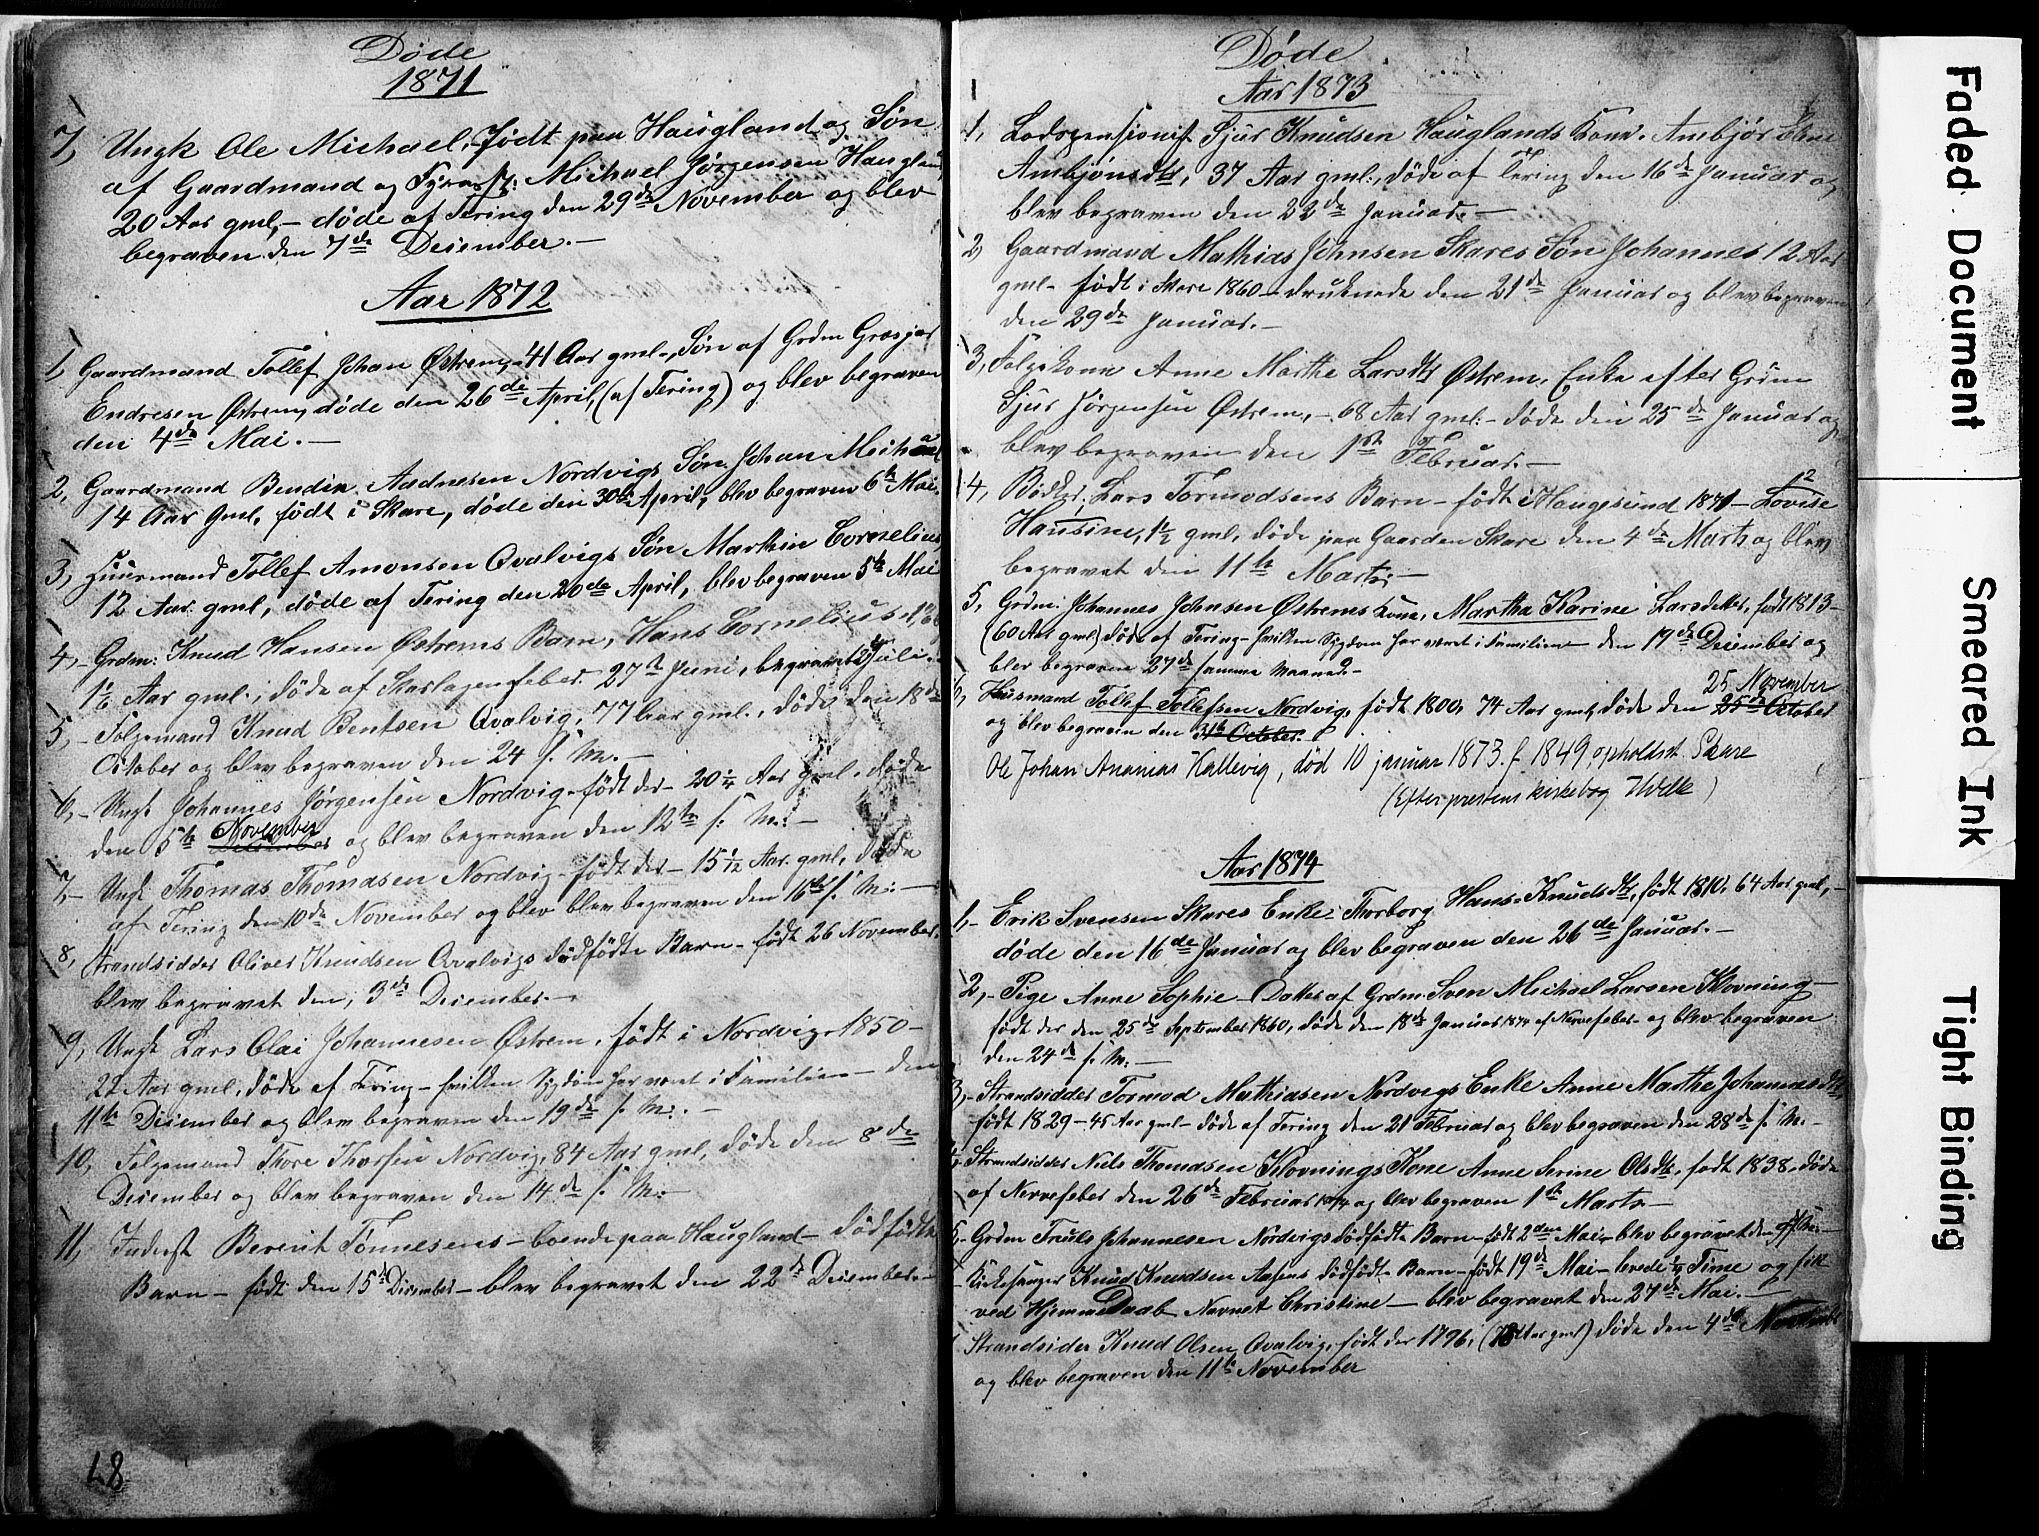 Døde
1871
7, Ungk Ole Michael, født paa Haugland og Søn
af Gaardmand og Fyrass: Michael Jørgensen Haugland
20 Aar gml, – døde af Tering den 29de November og blev
begraven den 7de Desember. –
Aar 1872
1, Gaardmand Tollef Johan Østrem, 41 Aar gml., Søn af Grdm
Endresen Østrem, døde den 26de April, (af Tering) og blev begraven
den 4de Mai. –
2, Gaardmand Bendix Aadnesen Nordvigs Søn Johan Michael
14 Aar gml, født i Skare, døde den 30te April, blev begraven 6te Mai.
3, Huusmand Tollef Amonsen Qvalvigs Søn Marthin Cornelius
12 Aar gml, døde af Tering den 20de April, blev begraven 5te Mai
4, – Grdm: Knud Hansen Østrems Barn, Hans Cornelius
Aar gml., døde af Skarlagensfeber 27de Juni, begravet Juli. –
5, – Følgemand Knud Bentsen Qvalvig, 77 Aar gml., døde den 18de
October og blev begraven den 24 s. M. –
6, – Ungk Johannes Jørgensen Nordvig – født der – 20 1/4 Aar gml. døde
den 5te November Desember og blev begraven den 12te s: M: –
7, – Ungk Thomas Thomasen Nordvig – født der – 15 1/2 Aar gml, døde
af Tering den 10de November og blev blev begraven den 16te s. M: –
8, Strandsidder Oliver Knudsen Qvalvigs dødfødte Barn – født 26 November.
blev begravet den, 3de Desember. –
9, Ungk Lars Olai Johannesen Østrem, født i Nordvig, 1850 –
22 Aar gml, døde af Tering – hvilken Sygdom har været i Familien – den
11te Desember og blev begraven den 19de s. M: –
10, Følgemand Thore Thorsen Nordvig, 84 Aar gml, døde den 8de
Desember og blev begraven den 14de s. M: –
11, Inderst Berent Tønnesens – boende paa Haugland – dødfødte
Barn – født den 15de Desember – blev begravet den 22de Desember. –
48
Døde
Aar 1873
1, Lodspensionist Sjur Knudsen Hauglands Kone. Ambjør
Ambjørnsdtr, 37 Aar gml., døde af Tering den 16de Januar og
blev begraven den 22de Januar. –
2, Gaardmand Mathias Johnsen Skares Søn Johannes 12 Aar
gml – født i Skare 1860 – druknede den 21de Januar og blev begraven
den 29de Januar. –
3, Følgekone Anne Marthe Larsdtr Østrem, Enke efter Grdm
Sjur Jørgensen Østrem, – 68 Aar gml. – døde den 25de Januar og
blev begraven den 1ste Februar. –
4, Bødker, Lars Tormodsens Barn – født i Haugesund 1871 – Lovise
2
Hansine, 1 1/2 gml, døde paa Gaarden Skare den 4de Marts og blev
begravet den 11te Marts –
5, Grdm: Johannes Johnsen Østrems Kone, Martha Karine Larsdatter, født 1813 –
(60 Aar gml) døde af Tering – hvilken Sygdom har været i Familien – den 19de Desember og
blev begraven 27de samme Maaned –
6, Huusmand Tollef Tollefsen Nordvig, født 1800, 74 Aar gml, døde den 25de October
25 November
og blev begraven den 31te October.
Ole Johan Ananias Kallevig, død 10 januar 1873. f 1849 opholdsst. Skare
(Efter prestens kirkebog
Aar 1874
1, – Erik Svensen Skares Enke: Thorborg Hans-Knudsdtr, født 1810, 64 Aar gml, –
døde den 16de Januar og blev begraven den 26de Januar. –
2, – Pige Anne Sophie – Datter af Grdm. Sven Michael Larsen Kvovning –
født der den 25de September 1860, døde den 18de Januar 1874 af Nervefeber – og blev begraven
den 24de s. M: –
3, – Strandsidder Tormod Mathiasen Nordvigs Enke Anne Marthe Johannesdtr,
født 1829 – 45 Aar gml – døde af Tering den 21 Februar og blev begraven den 28de s. M. –
4, – Strandsidder Niels Thomasen Kvovnings Kone Anne Serine Olsdtr, født 1838, døde
af Nervefeber den 26de Februar 1874 og blev begraven 1ste Marts –
5, – Grdm Truls Johannesen Nordvigs dødfødte Barn – født 2den Mai – blev begravet den s. M: –
Kirkesanger Knud Knudsen Aasens dødfødte Barn – født 19de Mai – levede 1/2 Time og fik
ved Hjemmedaab Navnet Christine – blev begravet den 27de Mai. –
Strandsider Knud Olsen Qvalvig, født der 1796, (78 Aar gml) døde den 4de November
og blev begraven den 11te November
Faded Document
Smeared Ink
Tight Binding